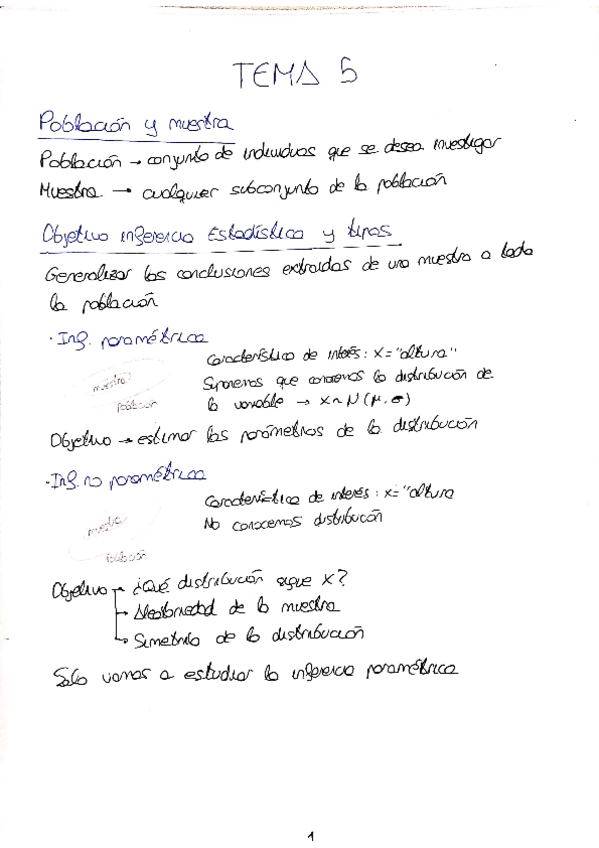 TEMA 5
Población y muestra
Población → conjunto de individuos que se desea investigar
Muestra → cualquier subconjunto de la población
Objetivo inferencia Estadística y tipos
Generalizar las conclusiones extraídas de una muestra a toda
la población
· Inf. paramétrica
Característica de interés: X = "altura"
muestra
Suponemos que conocemos la distribución de
población
la variable → X ~ N (μ, σ)
Objetivo → estimar los parámetros de la distribución
· Inf. no paramétrica
Característica de interés: X = "altura
muestra
No conocemos distribución
población
Objetivo → ¿Qué distribución sigue X?
→ Aleatoriedad de la muestra
→ Simetría de la distribución
Solo vamos a estudiar la inferencia paramétrica
1